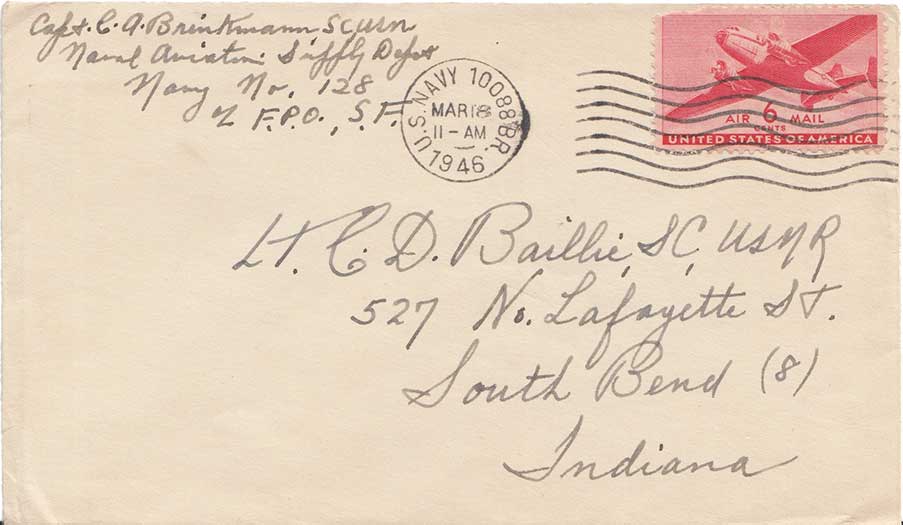 Capt. C. A. Brinkmann, SC, USN
Naval Aviation Supply Depot
Navy No. 128
℅ F.P.O., S.F.
U.S. NAVY 10088 BR.
MAR 18
11-AM
1946
AIR 6 MAIL
CENTS
UNITED STATES OF AMERICA
Lt. C. D. Baillie, SC, USNR
527 No. Lafayette St.
South Bend (8)
Indiana